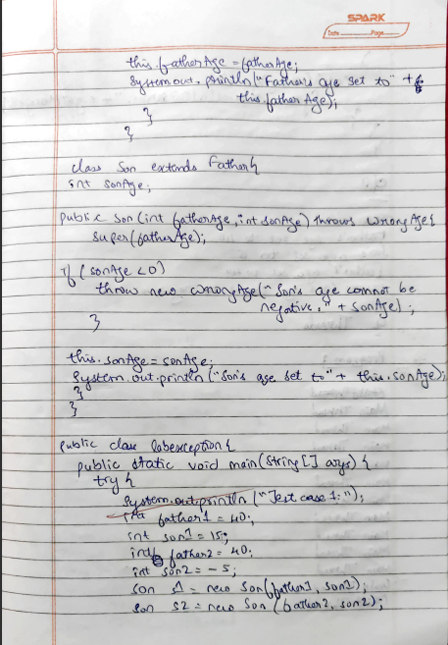 SPARK
Date Page
this.fatherAge = fatherAge;
System.out.println("Father's age set to" +
this.fatherAge);
}
}
class Son extends Father{
int sonAge;
public Son(int fatherAge, int sonAge) throws WrongAge{
super(fatherAge);
if (sonAge < 0)
throw new WrongAge("Son's age cannot be
negative," + sonAge);
}
this.sonAge = sonAge;
System.out.println("Son's age set to" + this.sonAge);
}
}
Public class labexception{
public static void main(String[] args) {
try {
System.out.println("Test case 1:");
int father1 = 40;
int son1 = 15;
int father2 = 40;
int son2 = -5;
Son S1 = new Son(father1, son1);
Son S2 = new Son (father2, son2);